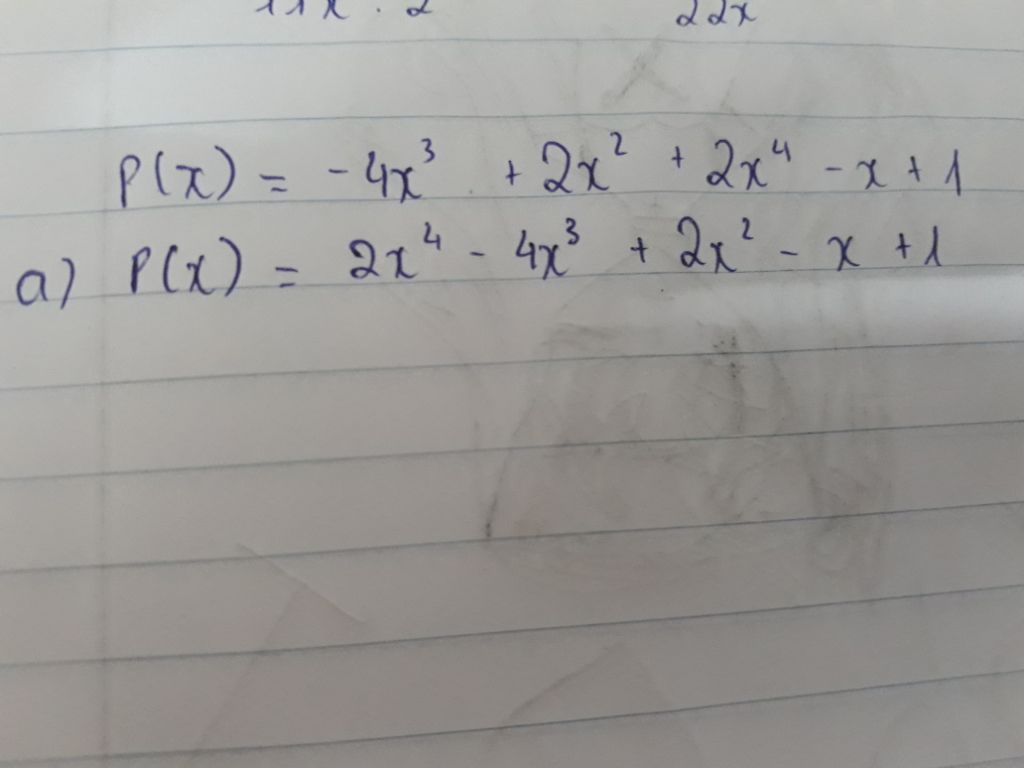 22x
P(x) = -4x³ + 2x² + 2x⁴ - x + 1
a) P(x) = 2x⁴ - 4x³ + 2x² - x + 1